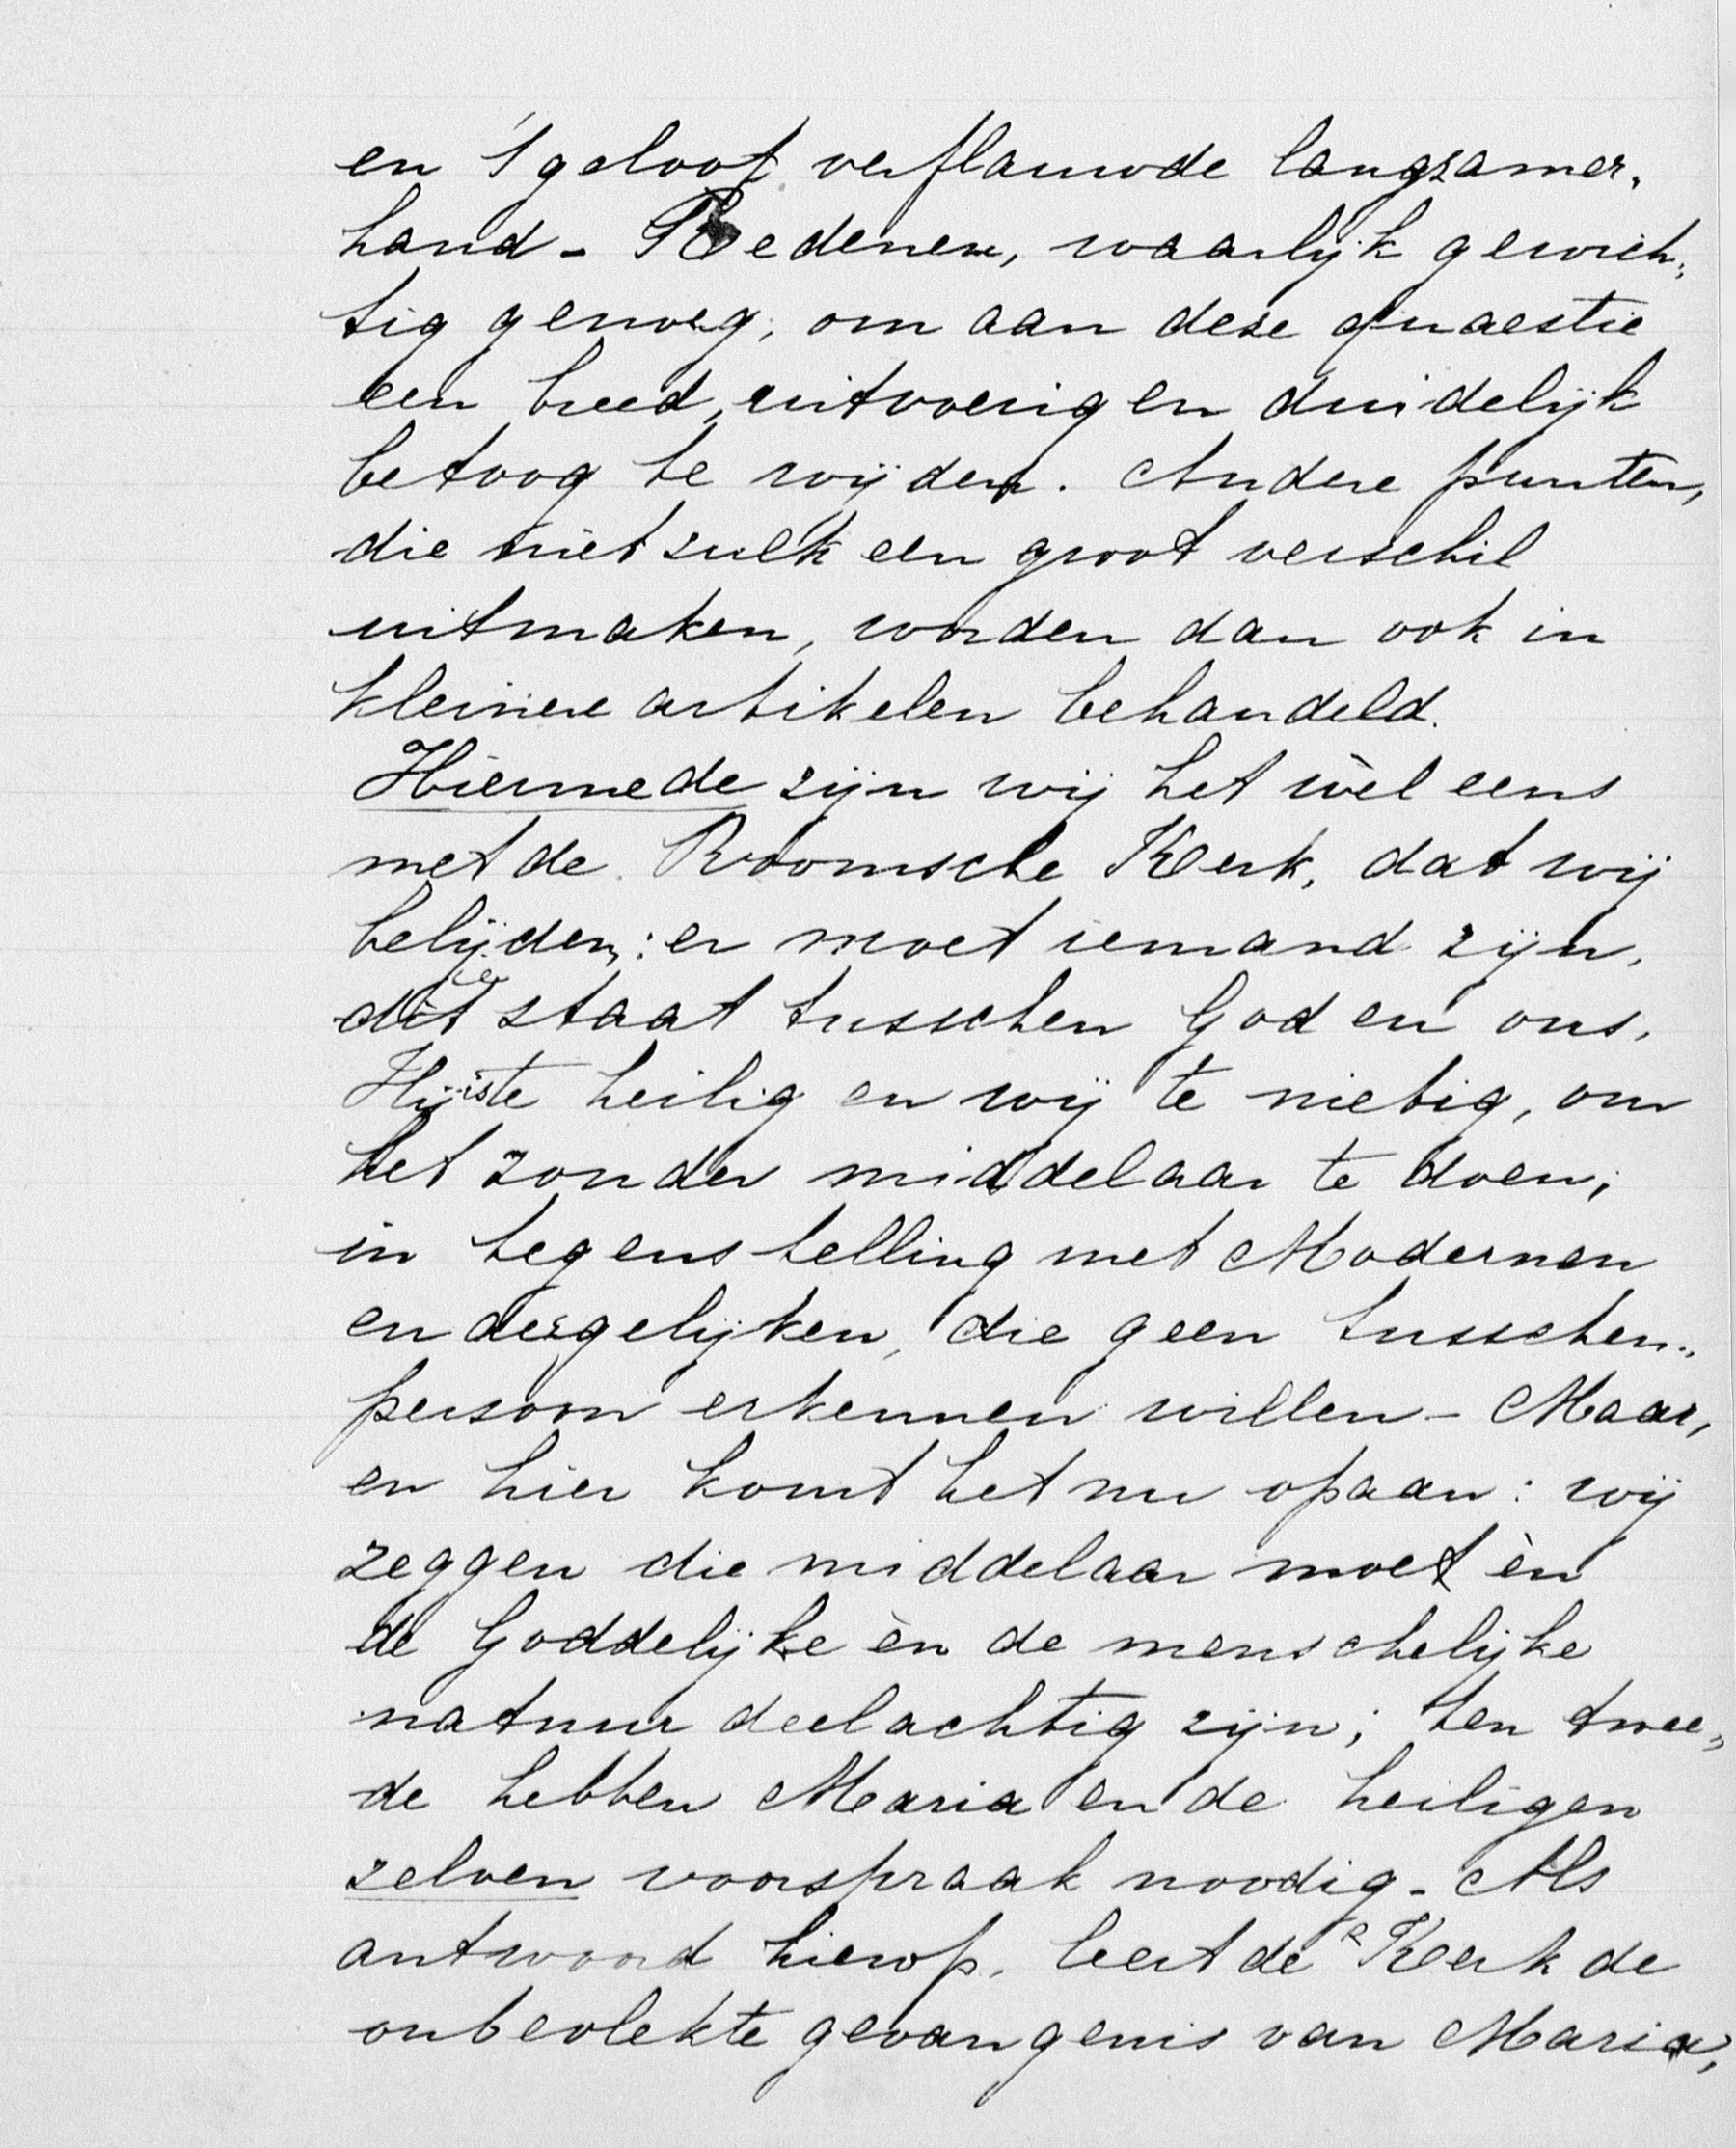 en 't geloof verflauwde langzamer„
hand - Redenen, waarlijk gewich„
tig genoeg, om aan deze quaestie
een breed, uitvoerig en duidelijk
betoog te wijden. Andere punten,
die niet zulk een groot verschil
uitmaken, worden dan ook in
kleinere artikelen behandeld.
Hiermede zijn wij het wèl eens
met de Roomsche Kerk, dat wij
belijden: er moet iemand zijn,
die staat tusschen God en ons,
Hij is te heilig en wij te nietig, om
het zonder middelaar te doen;
in tegenstelling met Modernen
en dezgelijken, die geen tusschen„
persoon erkennen willen - Maar,
en hier komt het nu opaan: wij
zeggen die middelaar moet èn
de Goddelijke èn de menschelijke
natuur deelachtig zijn; ten twee„
de hebben Maria en de heiligen
zelven voorspraak noodig. Als
antwoord hierop, leert de R Kerk de
onbevlekte gevangenis van Maria,